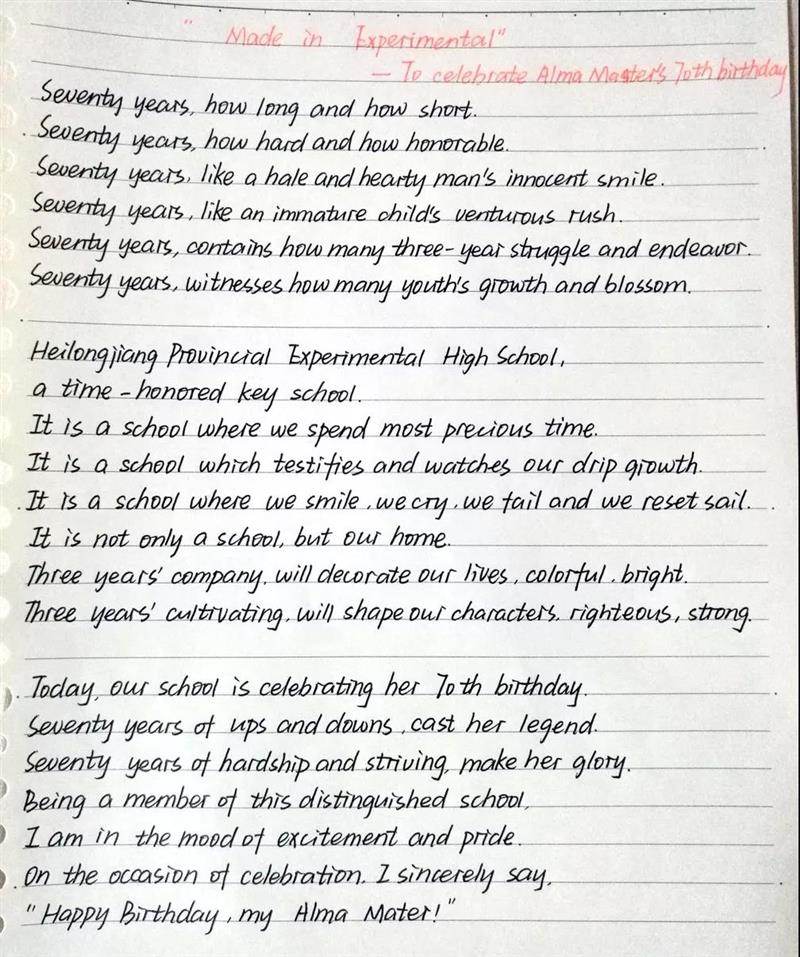 "Made in Experimental"
— To celebrate Alma Master's 70th birthday
Seventy years, how long and how short.
Seventy years, how hard and how honorable.
Seventy years, like a hale and hearty man's innocent smile.
Seventy years, like an immature child's venturous rush.
Seventy years, contains how many three-year struggle and endeavor.
Seventy years, witnesses how many youth's growth and blossom.
Heilongjiang Provincial Experimental High School,
a time-honored key school.
It is a school where we spend most precious time.
It is a school which testifies and watches our drip growth.
It is a school where we smile, we cry, we fail and we reset sail.
It is not only a school, but our home.
Three years' company, will decorate our lives, colorful, bright.
Three years' cultivating, will shape our characters, righteous, strong.
Today, our school is celebrating her 70th birthday.
Seventy years of ups and downs, cast her legend.
Seventy years of hardship and striving, make her glory.
Being a member of this distinguished school,
I am in the mood of excitement and pride.
On the occasion of celebration, I sincerely say,
"Happy Birthday, my Alma Mater!"